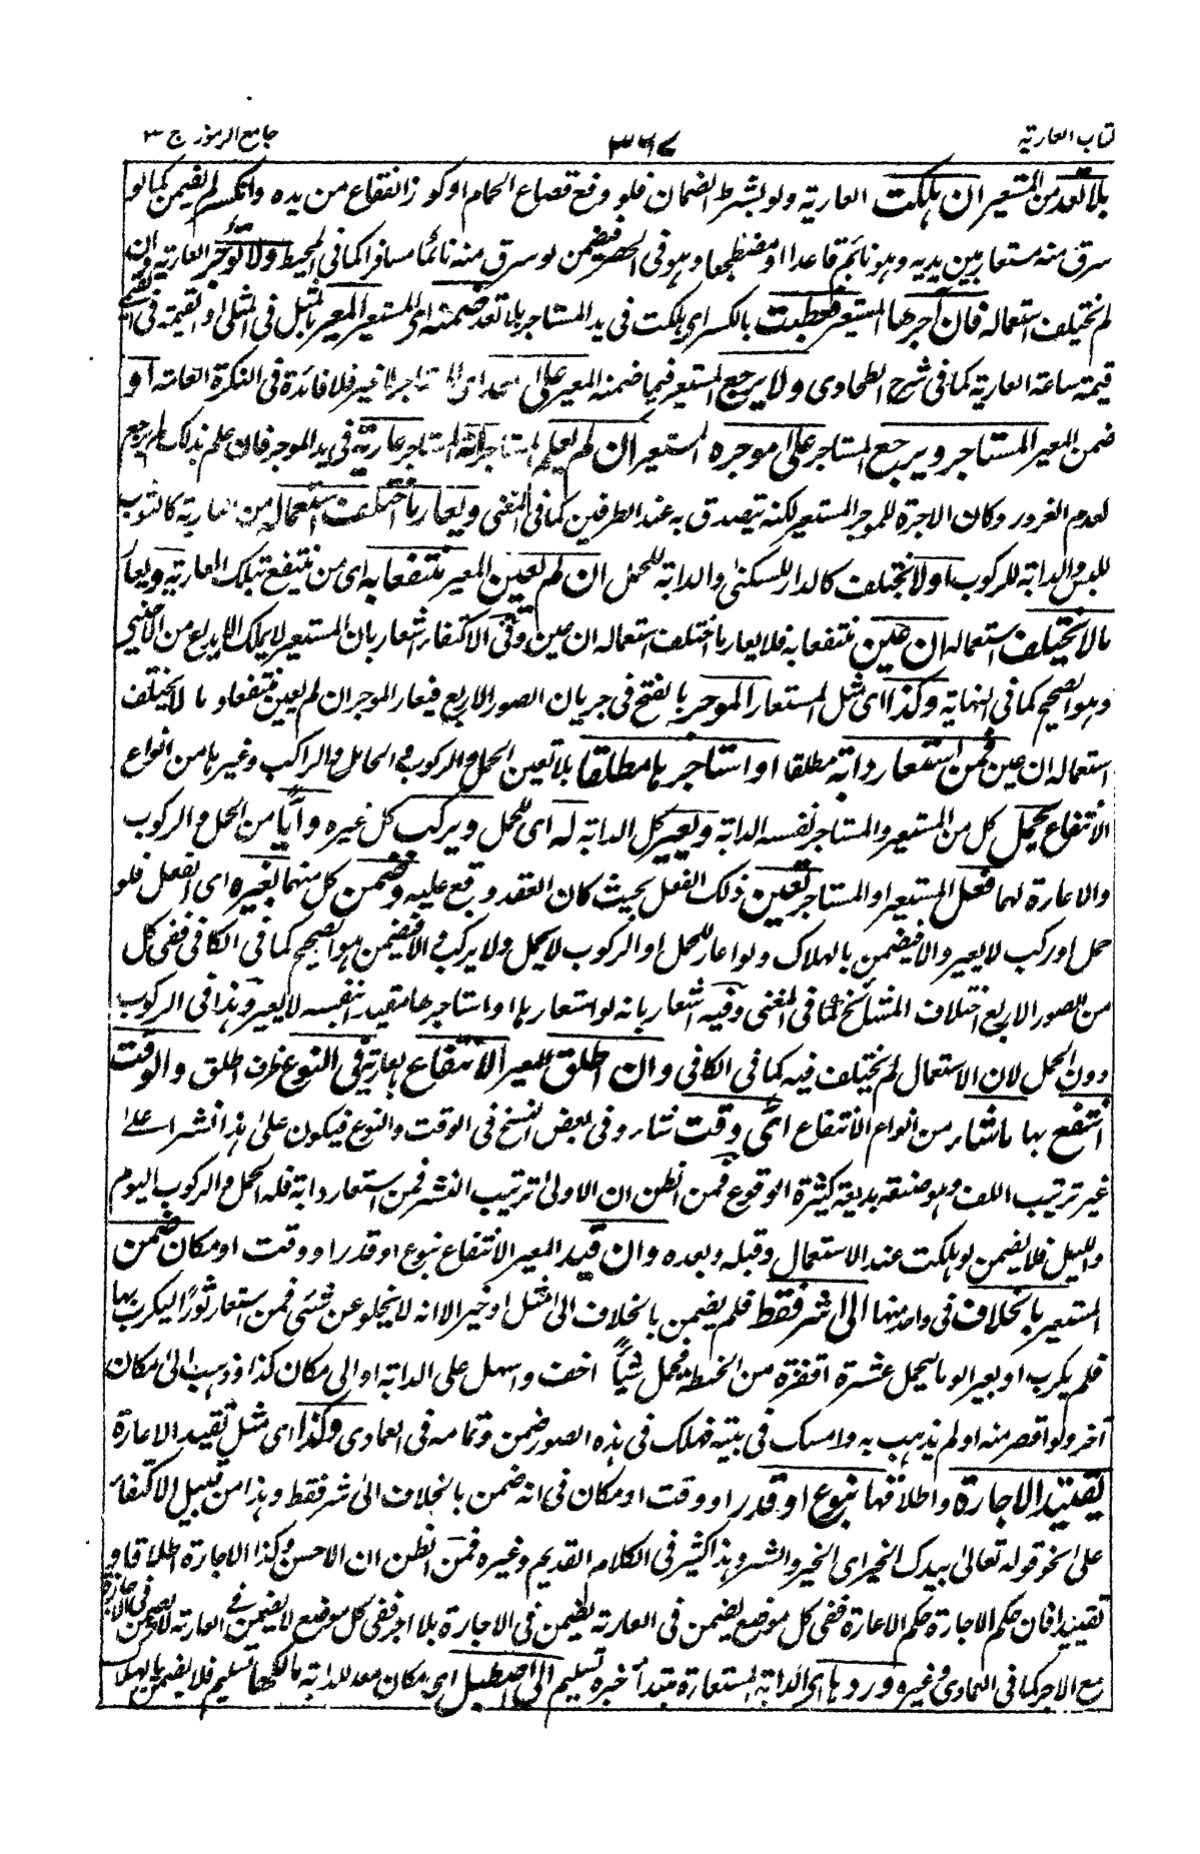 كتاب العارية ٣٦٧ جامع الرموز ج ٣
بلا تعد من المستعير ان هلكت العارية ولو بشرط الضمان فلو وقع قصاع الحمام او كوز الفقاع من يده وانكسر لم يضمن كما لو
سرق منه مستعار بين يديه وهو نائم قاعدا او مضطجعا وهو في الحضر فيضمن لو سرق منه نائما مسافرا كما في المحيط ولا تؤجر العارية وان
لم تختلف استعماله فان آجرها المستعير فعطبت بالكسر اى هلكت في يد المستاجر بلا تعد ضمنه اى المستعير المعير بالمثل في المثلى او القيمة في القيمى
قيمة ساعة العارية كما في شرح الطحاوى ولا يرجع المستعير فيما ضمنه المعير على احد اى المستاجر لا غير فلا فائدة في النكرة العامة او
ضمن المعير المستاجر ويرجع المستاجر على موجره المستعير ان لم يعلم المستاجر انه المستاجر عارية في يد الموجر فان علم بذلك لم يرجع
لعدم الغرور وكان الاجرة للموجر المستعير لكنه يتصدق به عند الطرفين كما في المغنى ويعار ما اختلف استعماله من عارية كالثوب
للبس والدابة للركوب اولا تختلف كالدار للسكنى والدابة للحمل ان لم يعين المعير منتفعا به اى من ينتفع بتلك العارية ويعار
ما لا تختلف استعماله ان عين منتفعا به فلا يعار ما اختلف استعماله ان عين وفى الاكتفاء اشعار بان المستعير لا يملك الايداع من الاجنبي
وهو الصحيح كما في النهاية وكذا اى مثل المستعار الموجر بالفتح في جريان الصور الاربع فيعار الموجر ان لم يعين منتفعا وما لا يختلف
استعماله ان عين فمن استعار دابة مطلقا او استاجرها مطلقا بلا تعين الحمل والركوب والحامل والراكب وغيرها من انواع
الانتفاع يحمل كل من المستعير والمستاجر نفسه الدابة ويعير كل الدابة له اى للحمل ويركب كل غيره وأيا من الحمل والركوب
والاعارة لهما فعل المستعير او المستاجر تعين ذلك الفعل بحيث كان العقد وقع عليه وضمن كل منهما بغيره اى الفعل فلو
حمل او ركب لا يعير والا فيضمن بالهلاك ولو اعار للحمل او الركوب لا يحمل ولا يركب والا فيضمن هو الصحيح كما في الكافى ففى كل
من الصور الاربع اختلاف المشائخ كما في المغنى وفيه اشعار بانه لو استعارها او استاجرها مقيدا بنفسه لا يعير وهذا في الركوب
دون الحمل لان الاستعمال لم يختلف فيه كما في الكافى وان اطلق المعير الانتفاع بعارية في النوع ظرف اطلق والوقت
انتفع بها ما شاء من انواع الانتفاع اىّ وقت شاء وفى بعض النسخ في الوقت والنوع فيكون على هذا النشر على
غير ترتيب اللف وهو صنعة بديعة كثيرة الوقوع فمن الظن ان الاولى ترتيب النشر فمن استعار دابة فله الحمل والركوب اليوم
والليل فلا يضمن لو هلكت عند الاستعمال وقبله وبعده وان قيد المعير الانتفاع بنوع او قدر او وقت او مكان ضمن
المستعير بالخلاف في واحد منها الى شر فقط فلم يضمن بالخلاف الى مثل او خير الا انه لا يخلو عن شئ فمن استعار ثورا ليكرب بها
فلم يكرب او بعيرا لو ما يحمل عشرة اقفزة من الحنطة فحمل شيئاً اخف واسهل على الدابة او الى مكان كذا وذهب الى مكان
آخر ولو اقصر منه او لم يذهب به وامسك في بيته فهلك في هذه الصور ضمن وتمامه في العمادى وكذا اى مثل تقييد الاعارة
تقييد الاجارة واطلاقها بنوع او قدر او وقت او مكان في انه ضمن بالخلاف الى شر فقط وهذا من قبيل الاكتفاء
على نحو قوله تعالى بيدك الخير اى الخير والشر وهذا كثير في الكلام القديم وغيره فمن الظن ان الاحسن وكذا الاجارة اطلاقا و
تقييدا فان حكم الاجارة حكم الاعارة ففى كل موضع يضمن في العارية يضمن في الاجارة بلا اجر ففى كل موضع لا يضمن في العارية لا يضمن في الاجارة
مع الاجر كما في العمادى وغيره وردها اى الدابة المستعارة مبتدأ خبره تسليم الى اصطبل اى مكان معد للدابة مالكها تسليم فلا يضمن بالهلاك